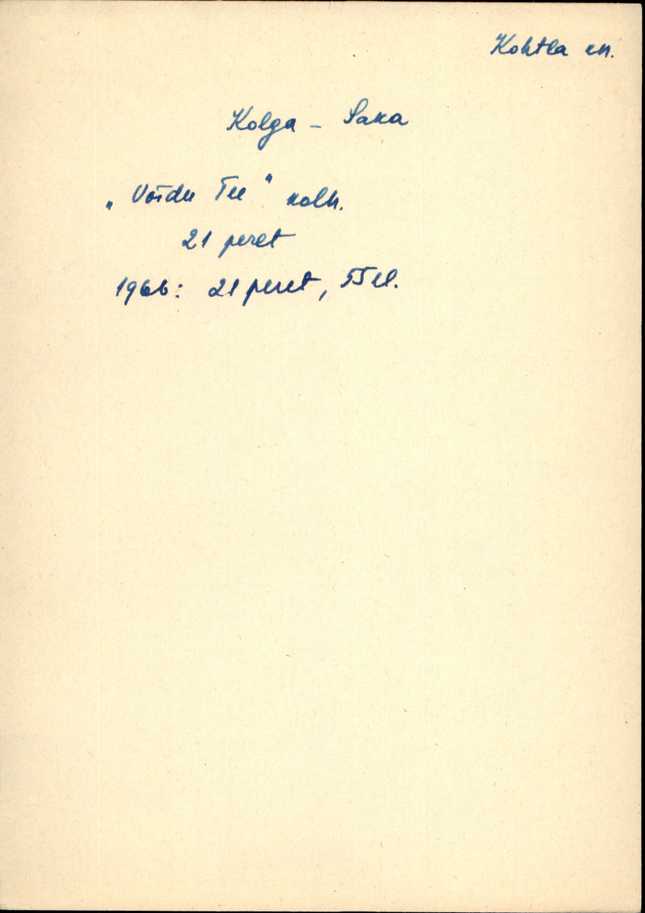 Kohtla kn.
Kolga - Saka
„Võidu Tee" kolh.
21 peret
1966: 21 peret, 55 el.